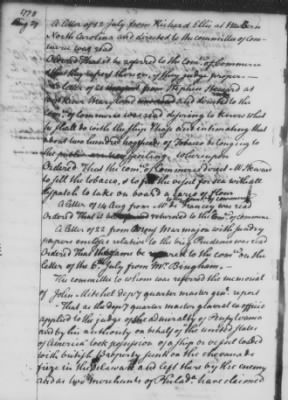 1778
Aug 29
A letter of 12 July from Richard Ellis at Newbern
North Carolina and directed to the committee of com-
merce was read
Ordered That it be referred to the Comee of Commerce
& that they report thereon, if they judge proper
A letter of 22 August from Stephen Steward at
West River Maryland and directed to the
comee of Commerce was read desiring to know what
he shall do with the ship and intimating that
about two hundred hogsheads of Tobacco belonging to
the public are whereupon
Ordered That the come of Commerce direct Mr Steward
to sell the tobacco, & to fit the vessel for sea with all
dispatch to take on board a cargo of flour
A letter of 14 Aug from Mr de Francey was read
Ordered That it be returned to the Come of commerce
A letter of 22 from Wersmajor with sundry
papers enclosed relative to the brig Prudens was read
Ordered that the same be referred to the comee on the
letter of the 6th July from Mr Bingham.
The committee to whom was referred the memorial
of John Mitchel depy quarter master genl report
"That as the depy quarter master general ex officio
applied to the judge of the admiralty of Pensylvania
and by his authority on behalf of the united states
of America took possession of a ship or vessel loaded
with british property sunk on the chevaux de
frize in the Delaware and left there by the enemy
and as two merchants of Philada have claimed